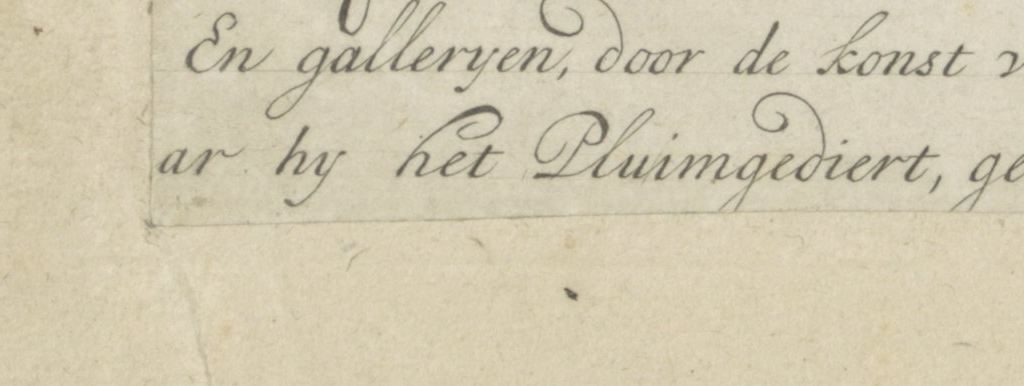 En galleryen, door de konst
ar hy het Pluimgediert, ge